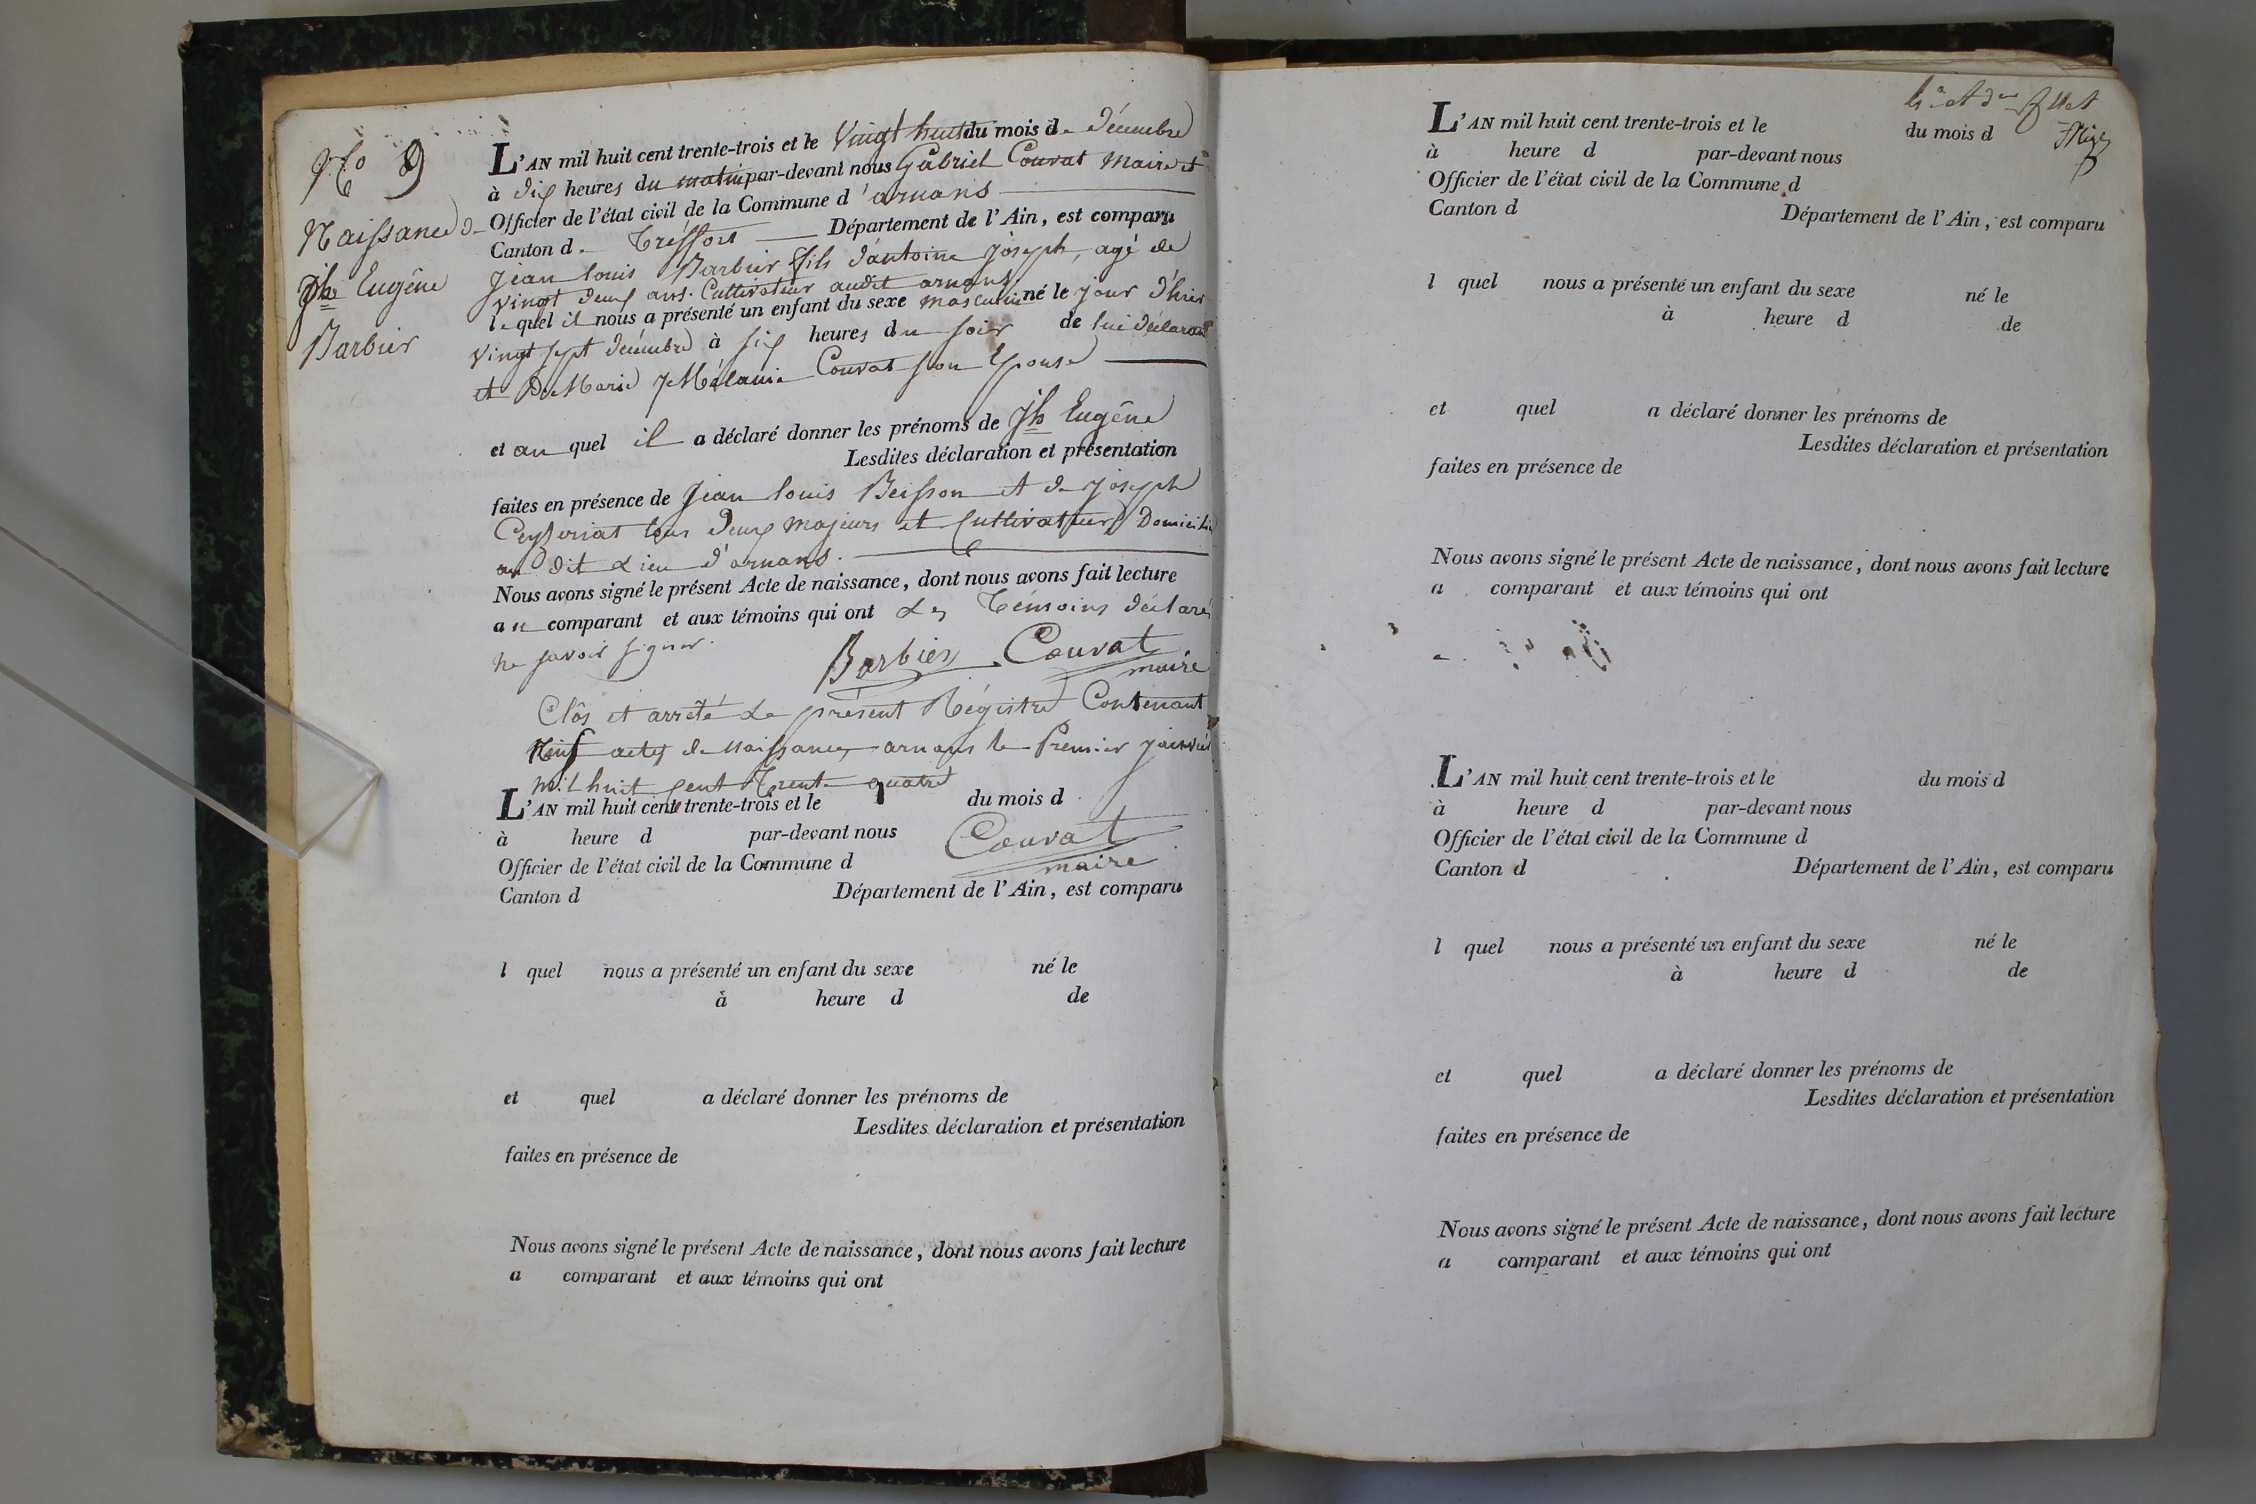 No 9
Naissance de
Jh Eugêne
Barbier
L'AN mil huit cent trente-trois et le Vingt huit du mois de décembre
à dix heures du matin par-devant nous Gabriel Couvat Maire et
Officier de l'état civil de la Commune d'arnans
Canton de Tréffort Département de l'Ain, est comparu
Jean louis Barbier fils d'antoine joseph, agé de
vingt deux ans. Cultivateur audit arnans
lequel il nous a présenté un enfant du sexe masculin né le jour d'hier
vingt sept décembre à six heures du soir de lui déclarant
et De Marie Mélanie Couvat son Epouse
et au quel il a déclaré donner les prénoms de Jh Eugêne
Lesdites déclaration et présentation
faites en présence de Jean louis Beisson et de joseph
Ceyseriat tous deux majeurs et Cultivateurs Domicilié
au dit Lieu d'arnans.
Nous avons signé le présent Acte de naissance, dont nous avons fait lecture
au comparant et aux témoins qui ont Les Témoins déclaré
ne savoir signer.
Barbier Couvat
maire
Clôs et arrêté Le présent Régistre Contenant
Neuf actes de Naissances arnans le Premier janvier
mil huit cent Trente quatre
L'AN mil huit cent trente-trois et le du mois d
à heure d par-devant nous Couvat
Officier de l'état civil de la Commune d maire
Canton d Département de l'Ain, est comparu
l quel nous a présenté un enfant du sexe né le
à heure d de
et quel a déclaré donner les prénoms de
Lesdites déclaration et présentation
faites en présence de
Nous avons signé le présent Acte de naissance, dont nous avons fait lecture
a comparant et aux témoins qui ont
L'AN mil huit cent trente-trois et le du mois d
à heure d par-devant nous
Officier de l'état civil de la Commune d
Canton d Département de l'Ain, est comparu
l quel nous a présenté un enfant du sexe né le
à heure d de
et quel a déclaré donner les prénoms de
Lesdites déclaration et présentation
faites en présence de
Nous avons signé le présent Acte de naissance, dont nous avons fait lecture
a comparant et aux témoins qui ont
L'AN mil huit cent trente-trois et le du mois d
à heure d par-devant nous
Officier de l'état civil de la Commune d
Canton d Département de l'Ain, est comparu
l quel nous a présenté un enfant du sexe né le
à heure d de
et quel a déclaré donner les prénoms de
Lesdites déclaration et présentation
faites en présence de
Nous avons signé le présent Acte de naissance, dont nous avons fait lecture
a comparant et aux témoins qui ont